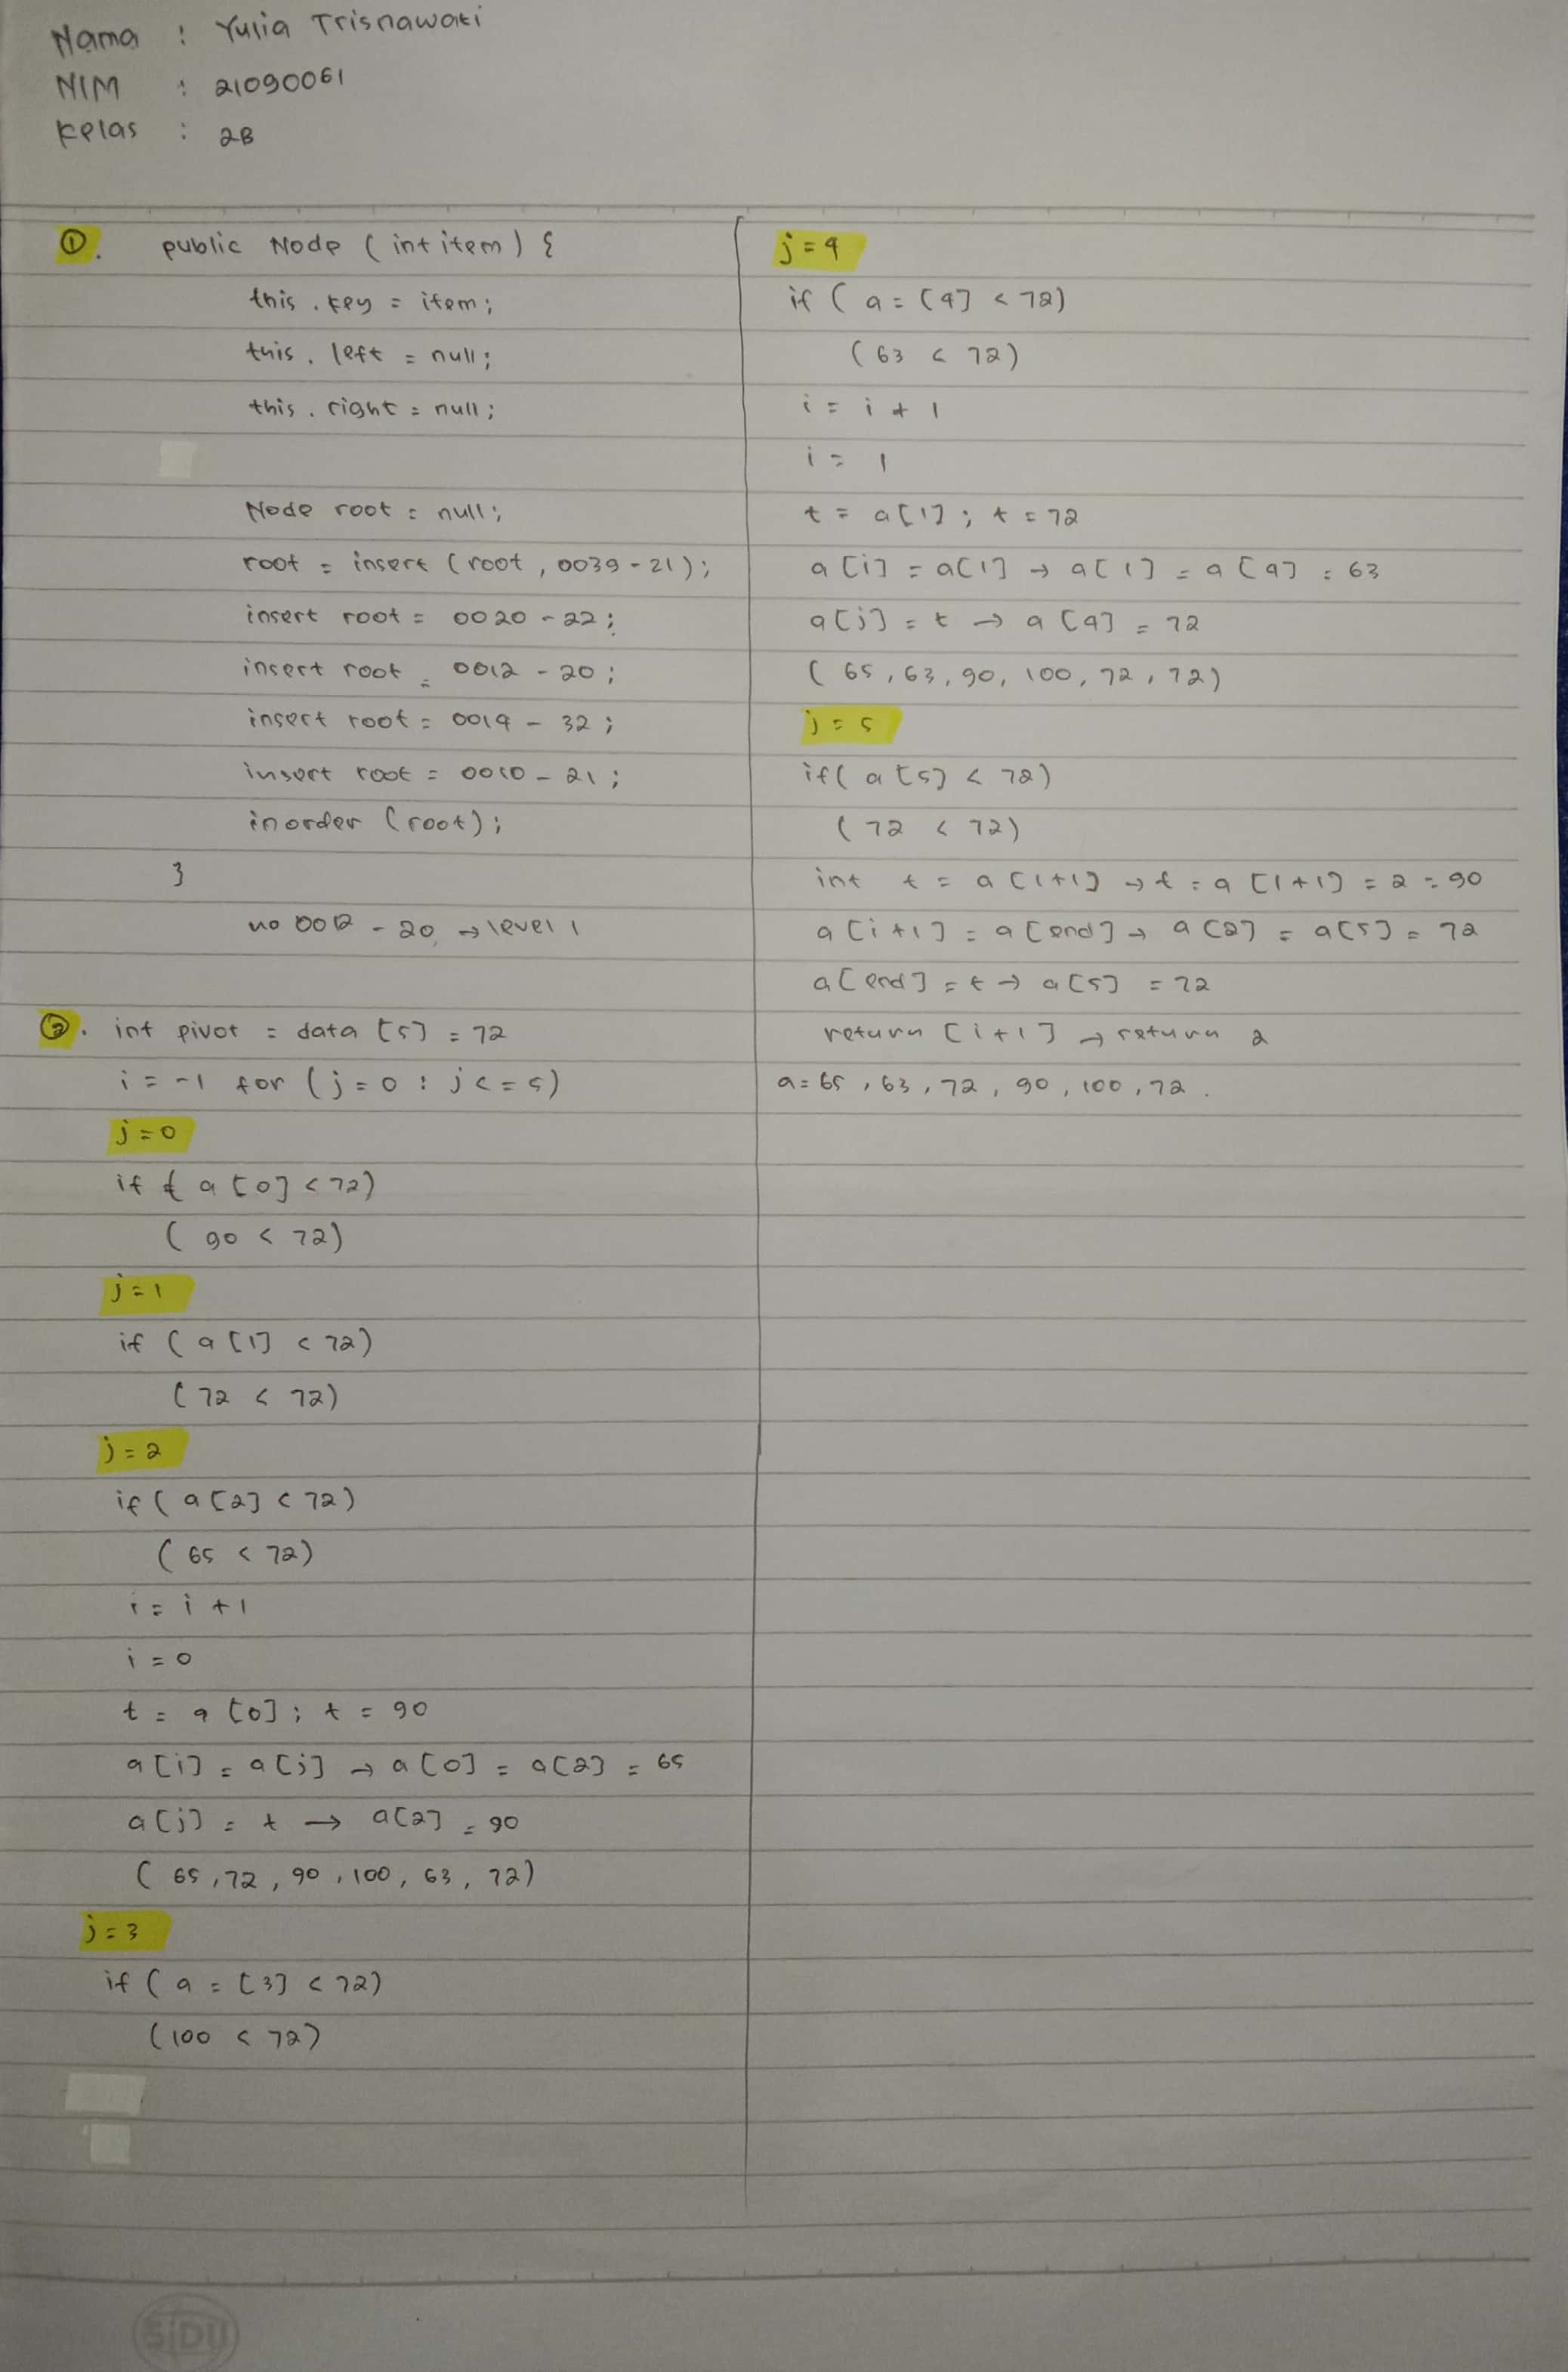 Nama : Yulia Trisnawati
NIM : 21090061
Kelas : 2B
1. public Node (int item) {
this.key = item;
this.left = null;
this.right = null;
Node root = null;
root = insert (root, 0039-21);
insert root = 0020-22;
insert root = 0012-20;
insert root = 0014-32;
insert root = 0010-21;
inorder (root);
}
no 0012-20 → level 1
2. int pivot = data [5] = 72
i = -1 for (j=0 : j<=5)
j=0
if ( a[0] < 72)
(90 < 72)
j=1
if (a[1] < 72)
(72 < 72)
j=2
if (a[2] < 72)
(65 < 72)
i = i+1
i = 0
t = a[0]; t = 90
a[i] = a[j] → a[0] = a[2] = 65
a[j] = t → a[2] = 90
(65, 72, 90, 100, 63, 72)
j=3
if (a = [3] < 72)
(100 < 72)
j=4
if (a = [4] < 72)
(63 < 72)
i = i+1
i = 1
t = a[1]; t = 72
a[i] = a[1] → a[1] = a[4] = 63
a[j] = t → a[4] = 72
(65, 63, 90, 100, 72, 72)
j=5
if( a[5] < 72)
(72 < 72)
int t = a[1+1] → t = a[1+1] = 2 = 90
a[i+1] = a[end] → a[2] = a[5] = 72
a[end] = t → a[5] = 72
return [i+1] → return 2
a = 65, 63, 72, 90, 100, 72.
SiDU